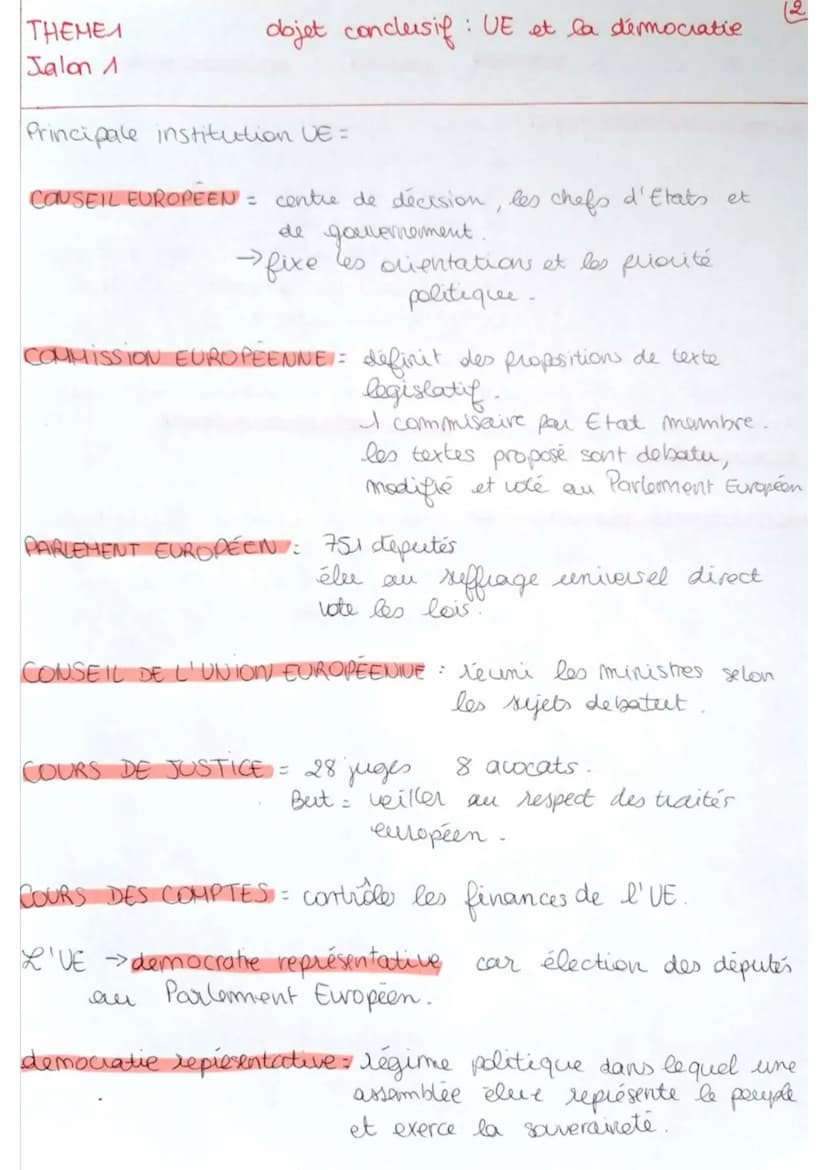 2
THEME1 objet conclusif : UE et la démocratie
Jalon 1
Principale institution UE =
CONSEIL EUROPÉEN = centre de décision, les chefs d'Etats et
de gouvernement.
→ fixe les orientations et les priorité
politique.
COMMISSION EUROPÉENNE = définit des propositions de texte
législatif.
1 commisaire par Etat membre.
les textes proposé sont debatu,
modifié et voté au Parlement Européen
PARLEMENT EUROPÉEN : 751 députés
élu au suffrage universel direct
vote les lois.
CONSEIL DE L'UNION EUROPÉENNE : réuni les ministres selon
les sujets debatut.
COURS DE JUSTICE = 28 juges 8 avocats.
But = veiller au respect des traités
européen.
COURS DES COMPTES = contrôle les finances de l'UE.
L'UE → democratie représentative car élection des députés
au Parlement Européen.
democratie représentative = régime politique dans lequel une
assemblée élue représente le peuple
et exerce la souveraineté.